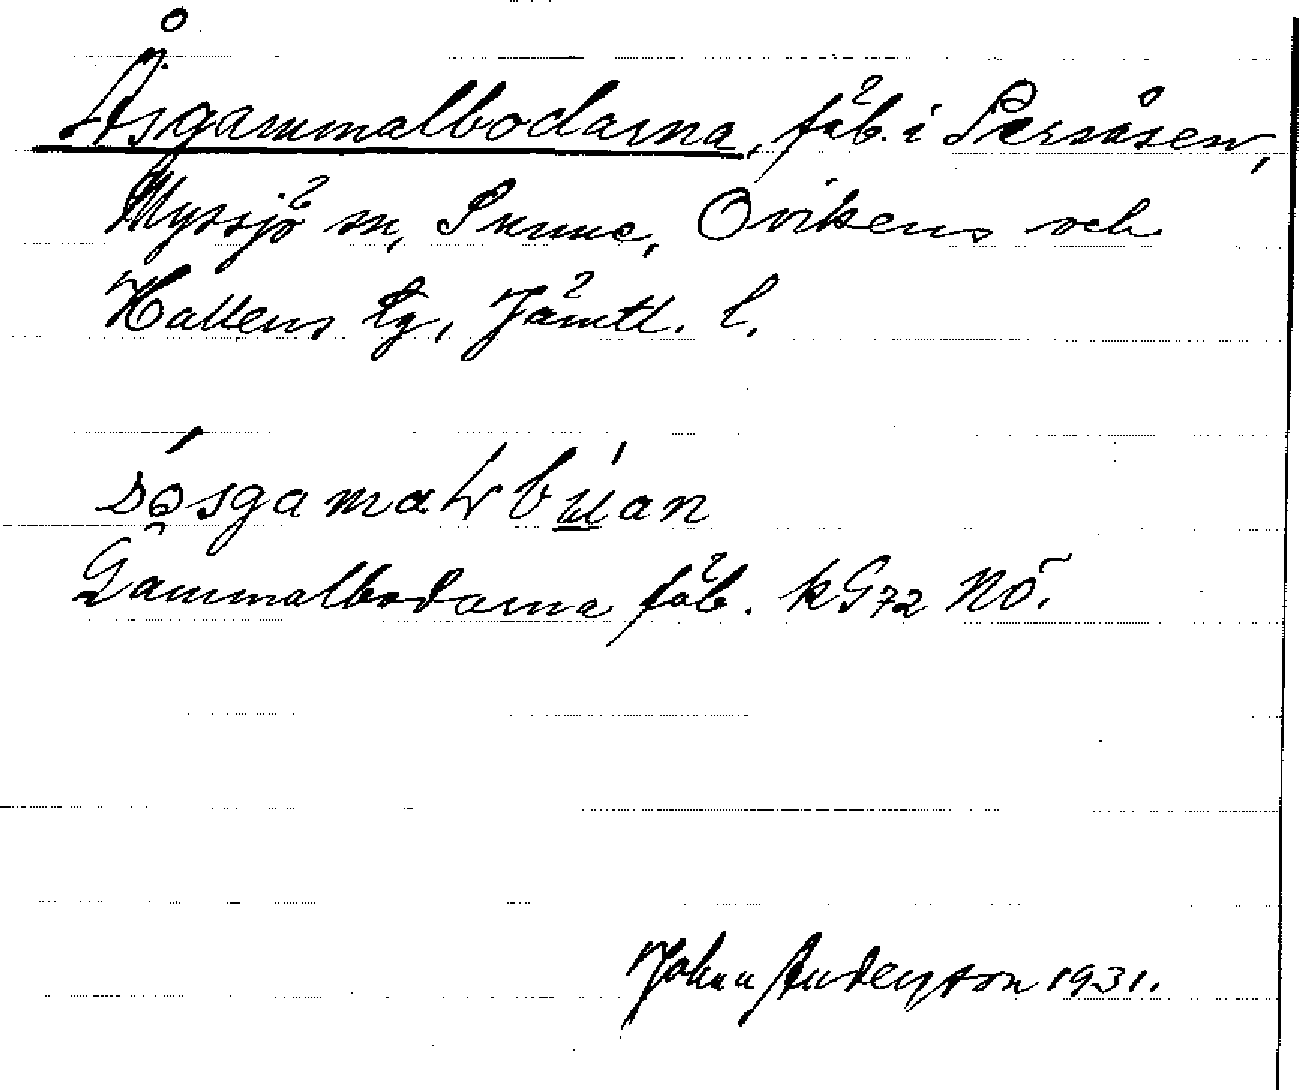 Å
Åsgammalbodarna, fäb. i Persåsen,
Myssjö sn, Sunne, Ovikens och
Hallens tg, Jämtl. l.
Gammalbodarna fäb. kG72 NÖ.
Johan Anderson 1931.